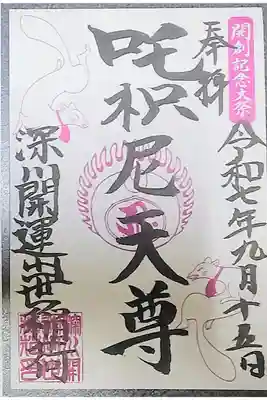 開創記念大祭
奉拝
令和七年九月十五日
吒枳尼天尊
深川開運出世稲荷